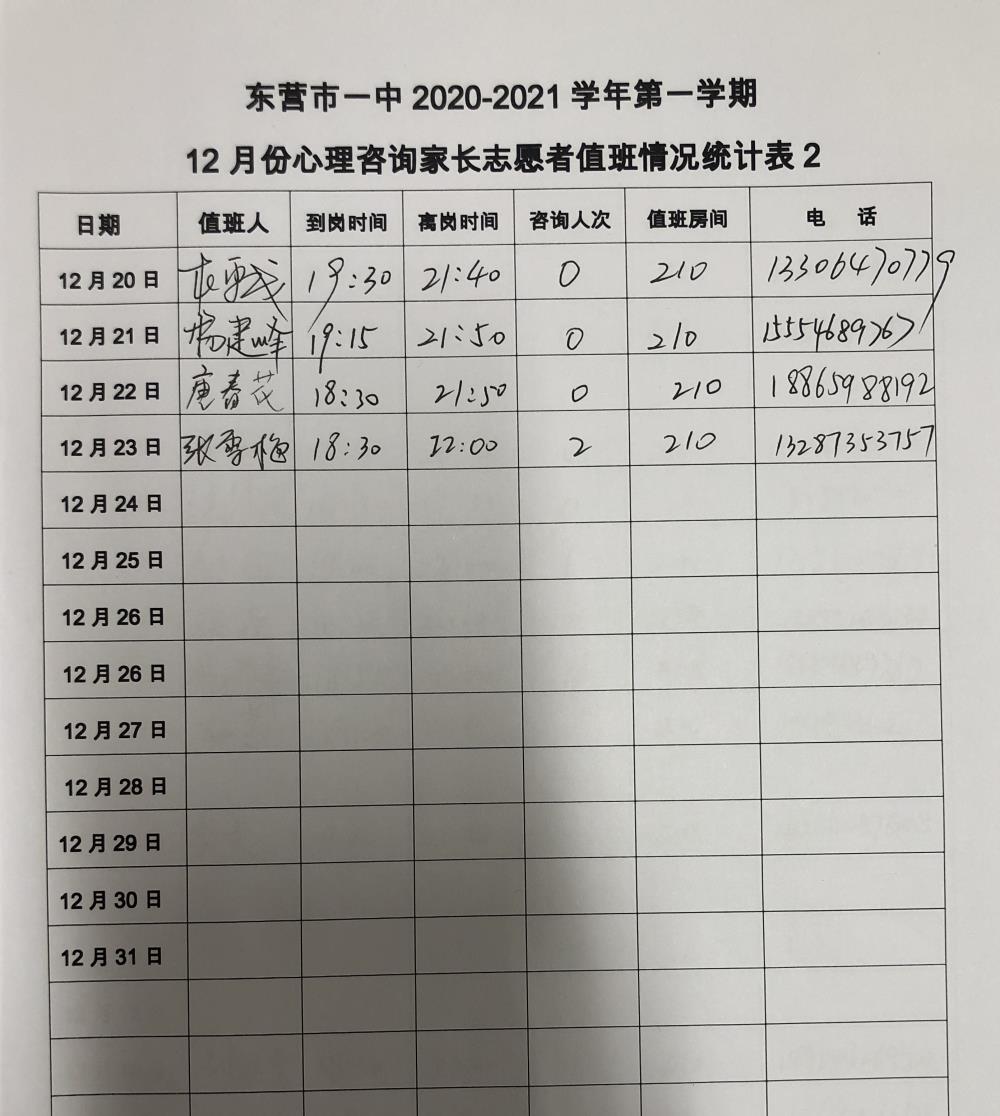 东营市一中 2020-2021 学年第一学期
12 月份心理咨询家长志愿者值班情况统计表 2
日期 值班人 到岗时间 离岗时间 咨询人次 值班房间 电 话
12 月 20 日 19:30 21:40 0 210 13306470779
12 月 21 日 杨建峰 19:15 21:50 0 210 15554689767
12 月 22 日 唐春花 18:30 21:50 0 210 18865988192
12 月 23 日 张雪梅 18:30 22:00 2 210 13287353757
12 月 24 日
12 月 25 日
12 月 26 日
12 月 26 日
12 月 27 日
12 月 28 日
12 月 29 日
12 月 30 日
12 月 31 日